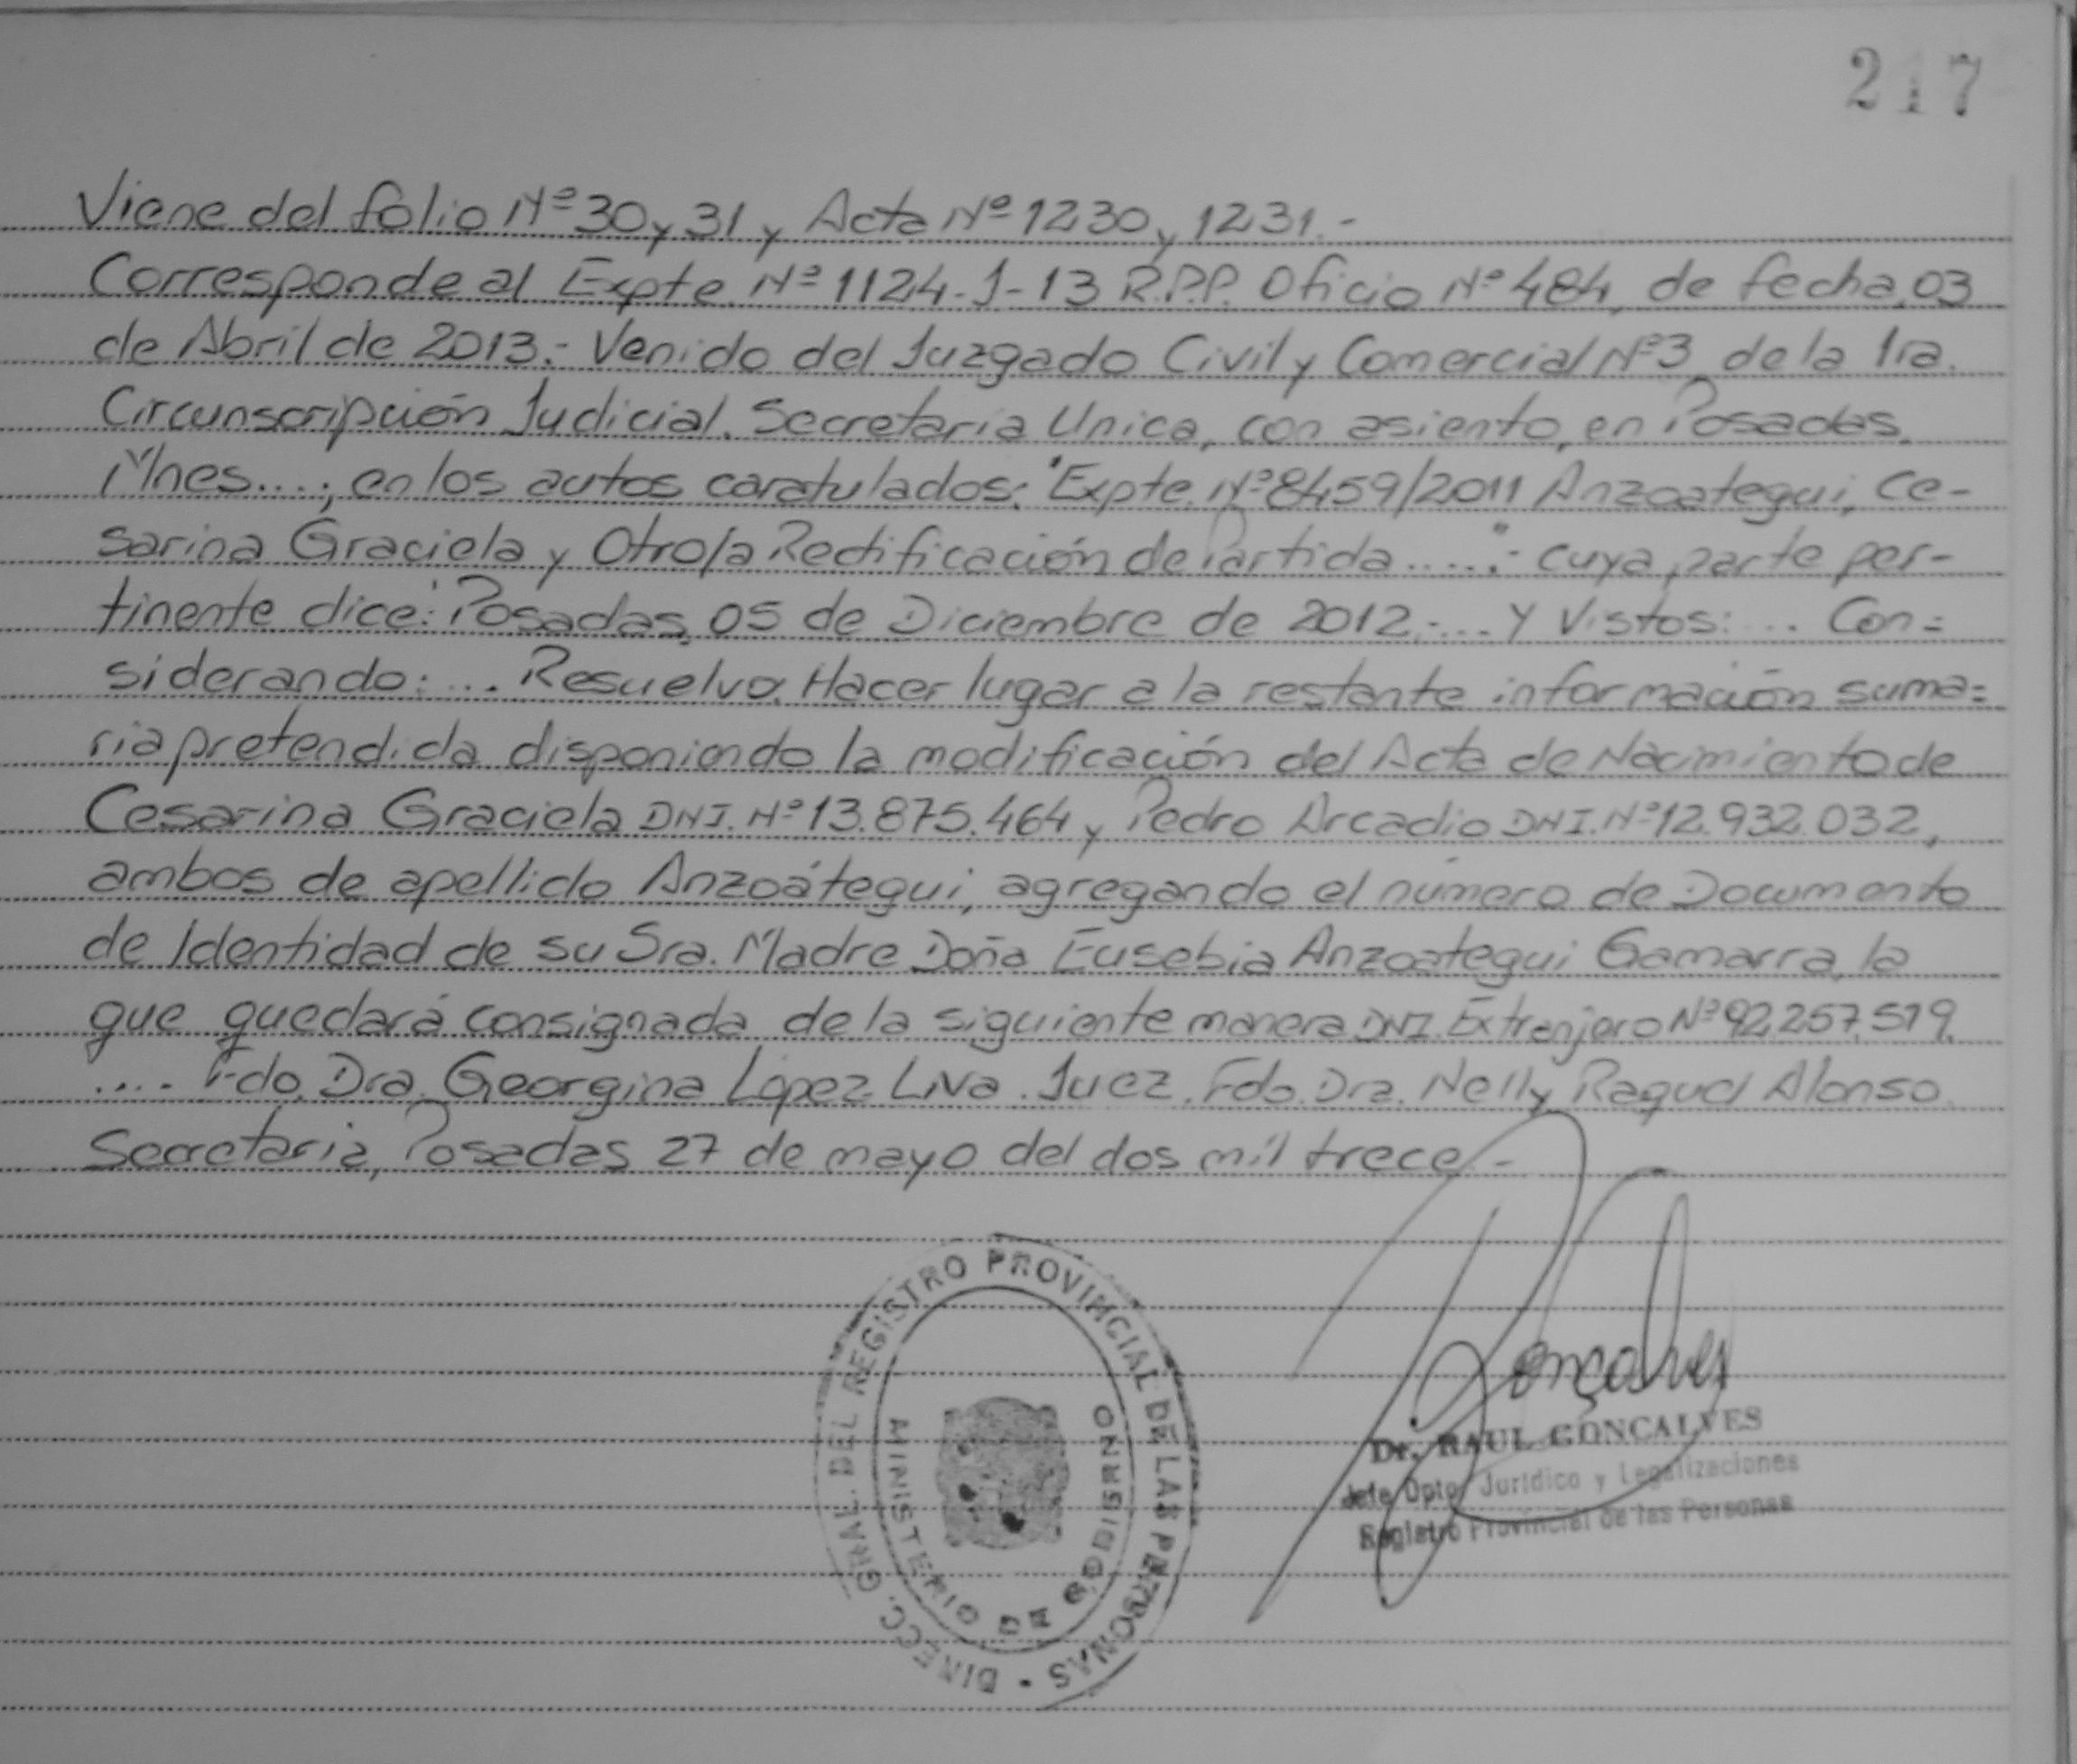 217
Viene del folio Nº 30 y 31 y Acta Nº 1230 y 1231.-
Corresponde al Expte. Nº 1124-J-13 R.P.P. Oficio Nº 484, de fecha 03
de Abril de 2013.- Venido del Juzgado Civil y Comercial Nº 3 de la 1ra.
Circunscripción Judicial. Secretaria Unica, con asiento, en Posadas,
Mnes....; en los autos caratulados: "Expte. Nº 8459/2011 Anzoategui, Ce-
sarina Graciela y Otro/a Rectificación de Partida....."- cuya parte per-
tinente dice: "Posadas, 05 de Diciembre de 2012.-... Y Vistos:... Con=
siderando:... Resuelvo: Hacer lugar a la restante información suma=
ria pretendida disponiendo la modificación del Acta de Nacimiento de
Cesarina Graciela DNI. Nº 13.875.464 y Pedro Arcadio DNI. Nº 12.932.032,
ambos de apellido Anzoátegui, agregando el número de Documento
de Identidad de su Sra. Madre Doña Eusebia Anzoategui Gamarra, la
que quedará consignada de la siguiente manera DNI. Extranjero Nº 92.257.519.
.... Fdo. Dra. Georgina López Liva. Juez. Fdo. Dra. Nelly Raquel Alonso.
Secretaria, Posadas 27 de mayo del dos mil trece.-
DIRECC. GRAL. DEL REGISTRO PROVINCIAL DE LAS PERSONAS
MINISTERIO DE GOBIERNO
Goncalves
Dr. RAUL GONCALVES
Jefe Dpto. Jurídico y Legalizaciones
Registro Provincial de las Personas